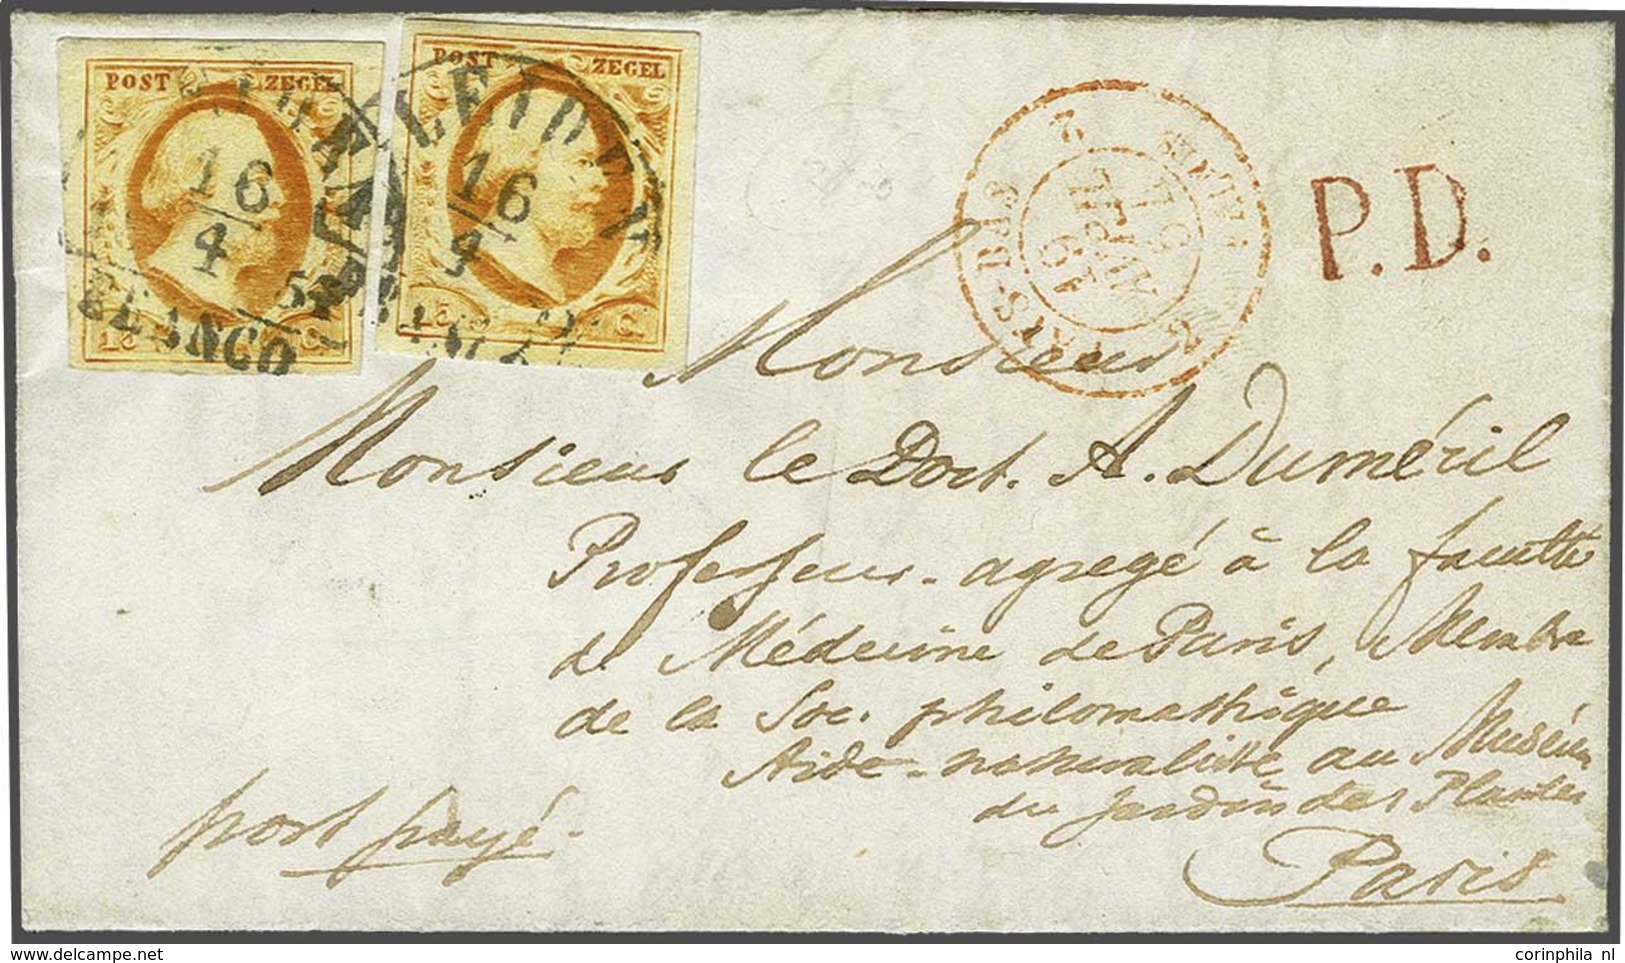 POST ZEGEL
POST ZEGEL
LEIDEN
16
4
FRANCO
16
4
15 C.
15 C.
PAYS-BAS
2
19
2
P.D.
Monsieur
Monsieur le Doct. A. Duméril
Professeur-agregé à la faculté
de Médecine de Paris, Membre
de la Soc. philomathique
Aide-naturaliste au Muséum
du jardin des Plantes
Paris
port payé.
corinphila nl